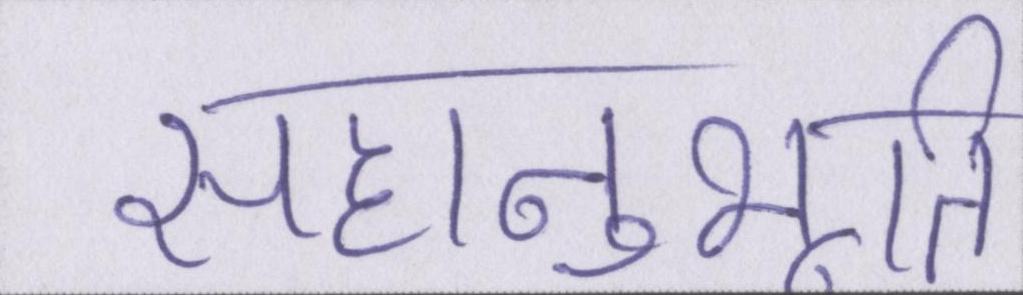 सहानुभूति